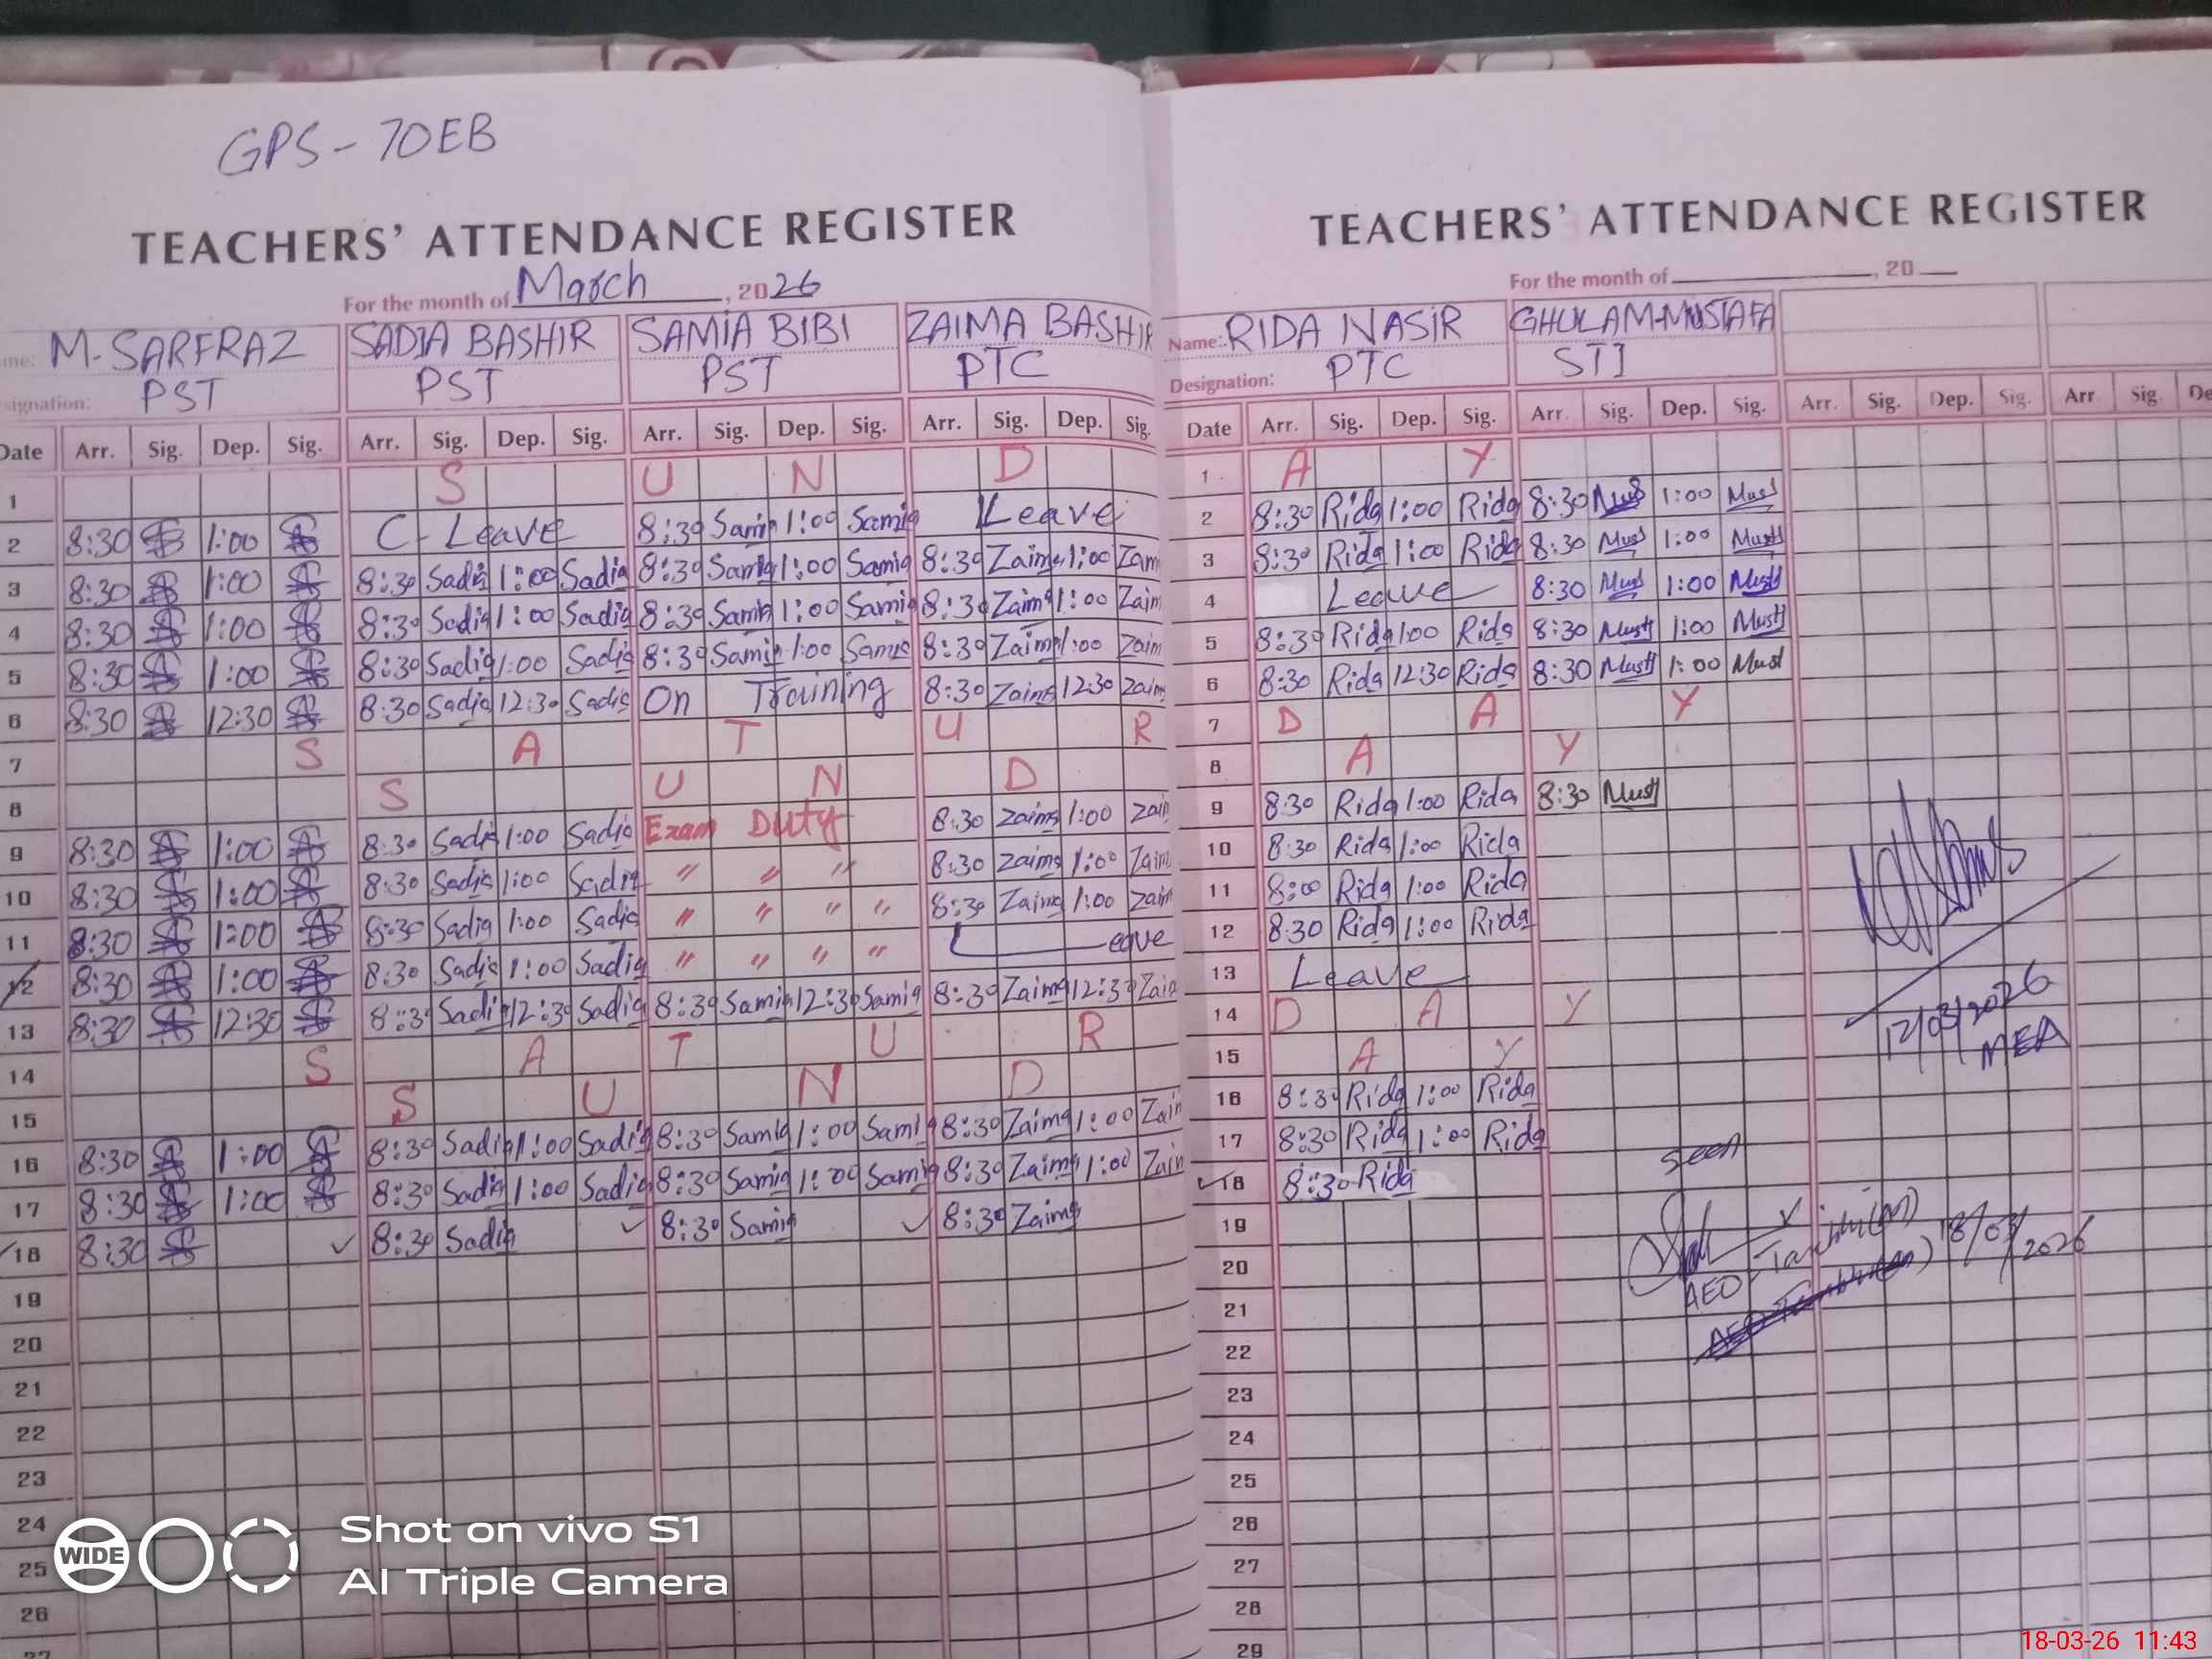 GPS-70EB
TEACHERS' ATTENDANCE REGISTER
For the month of March, 2026
me: M-SARFRAZ SADIA BASHIR SAMIA BIBI ZAIMA BASHIR
signation: PST PST PST PTC
Date Arr. Sig. Dep. Sig. Arr. Sig. Dep. Sig. Arr. Sig. Dep. Sig. Arr. Sig. Dep. Sig.
1 S U N D
2 8:30 1:00 C-Leave 8:30 Samia 1:00 Samia Leave
3 8:30 1:00 8:30 Sadia 1:00 Sadia 8:30 Samia 1:00 Samia 8:30 Zaima 1:00 Zaim
4 8:30 1:00 8:30 Sadia 1:00 Sadia 8:30 Samia 1:00 Samia 8:30 Zaima 1:00 Zaim
5 8:30 1:00 8:30 Sadia 1:00 Sadia 8:30 Samia 1:00 Samia 8:30 Zaima 1:00 Zaim
6 8:30 12:30 8:30 Sadia 12:30 Sadia On Training 8:30 Zaima 12:30 Zaim
7 S A T U R
8 S U N D
9 8:30 1:00 8:30 Sadia 1:00 Sadia Exam Duty 8:30 Zaima 1:00 Zaim
10 8:30 1:00 8:30 Sadia 1:00 Sadia " " " 8:30 Zaima 1:00 Zaim
11 8:30 1:00 8:30 Sadia 1:00 Sadia " " " " 8:30 Zaima 1:00 Zaim
12 8:30 1:00 8:30 Sadia 1:00 Sadia " " " " Leave
13 8:30 12:30 8:30 Sadia 12:30 Sadia 8:30 Samia 12:30 Samia 8:30 Zaima 12:30 Zaim
14 S A T U R
15 S U N D
16 8:30 1:00 8:30 Sadia 1:00 Sadia 8:30 Samia 1:00 Samia 8:30 Zaima 1:00 Zain
17 8:30 1:00 8:30 Sadia 1:00 Sadia 8:30 Samia 1:00 Samia 8:30 Zaima 1:00 Zain
18 8:30 8:30 Sadia 8:30 Samia 8:30 Zaima
19
20
21
22
23
24
25
26
27
TEACHERS' ATTENDANCE REGISTER
For the month of , 20
Name: RIDA NASIR GHULAM-MUSTAFA
Designation: PTC STI
Date Arr. Sig. Dep. Sig. Arr. Sig. Dep. Sig. Arr. Sig. Dep. Sig. Arr Sig. De
1 A Y
2 8:30 Rida 1:00 Rida 8:30 Must 1:00 Must
3 8:30 Rida 1:00 Rida 8:30 Must 1:00 Must
4 Leave 8:30 Must 1:00 Must
5 8:30 Rida 1:00 Rida 8:30 Must 1:00 Must
6 8:30 Rida 12:30 Rida 8:30 Must 1:00 Must
7 D A Y
8 A Y
9 8:30 Rida 1:00 Rida 8:30 Must
10 8:30 Rida 1:00 Rida
11 8:00 Rida 1:00 Rida
12 8:30 Rida 1:00 Rida
13 Leave
14 D A Y
15 A Y
16 8:30 Rida 1:00 Rida
17 8:30 Rida 1:00 Rida
18 8:30 Rida
19
20
21
22
23
24
25
26
27
28
29
12/03/2026
MEA
seen
AEO 18/03/2026
Shot on vivo S1
AI Triple Camera
WIDE
18-03-26 11:43